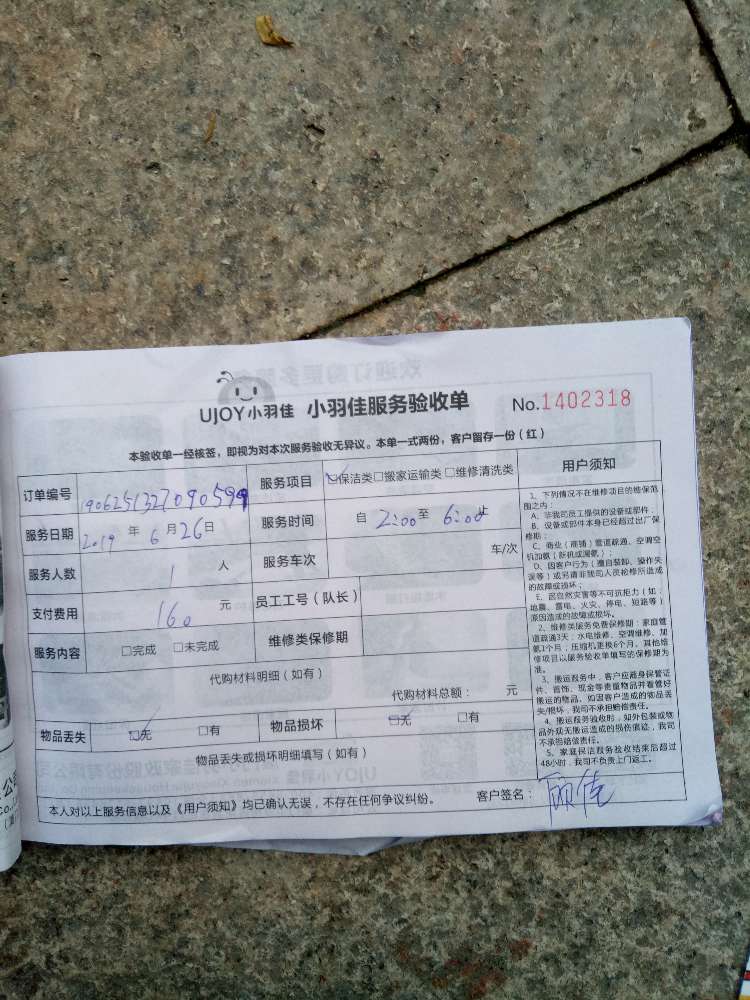 UJOY小羽佳 小羽佳服务验收单 No.1402318
本验收单一经核签，即视为对本次服务验收无异议。本单一式两份，客户留存一份（红）
订单编号 190625132709059 服务项目 ☑保洁类□搬家运输类□维修清洗类
服务日期 2019年6月26日 服务时间 自 2:00 至 6:00 止
服务人数 1 人 服务车次 车/次
支付费用 160 元 员工工号（队长）
服务内容 □完成 □未完成 维修类保修期
代购材料明细（如有）
代购材料总额： 元
物品丢失 ☑无 □有 物品损坏 ☑无 □有
物品丢失或损坏明细填写（如有）
本人对以上服务信息以及《用户须知》均已确认无误，不存在任何争议纠纷。 客户签名：丽佳
用户须知
1、下列情况不在维修项目的维保范
围之内：
A、非我司员工提供的设备或部件；
B、设备或部件本身已经超过出厂保
修期；
C、商业（商铺）管道疏通、空调空
机加氨（新机或漏氨）；
D、因客户行为（擅自装卸、操作失
误等）或另请非我司人员检修所造成
的故障或损坏；
E、因自然灾害等不可抗拒力（如：
地震、雷电、火灾、停电、短路等）
原因造成的故障或损坏。
2、维修类服务免费保修期：家庭管
道疏通3天；水电维修、空调维修、加
氨3个月；压缩机更换6个月。其他维
修项目以服务验收单填写的保修期为
准。
3、搬运服务中，客户应随身保管证
件、首饰、现金等贵重物品并看管好
搬运的物品，如因客户造成的物品丢
失/损坏，我司不承担赔偿责任。
4、搬运服务验收时，如外包装或物
品外观无搬运造成的损伤痕迹，我司
不承担赔偿责任。
5、家庭保洁服务验收结束后超过
48小时，我司不负责上门返工。